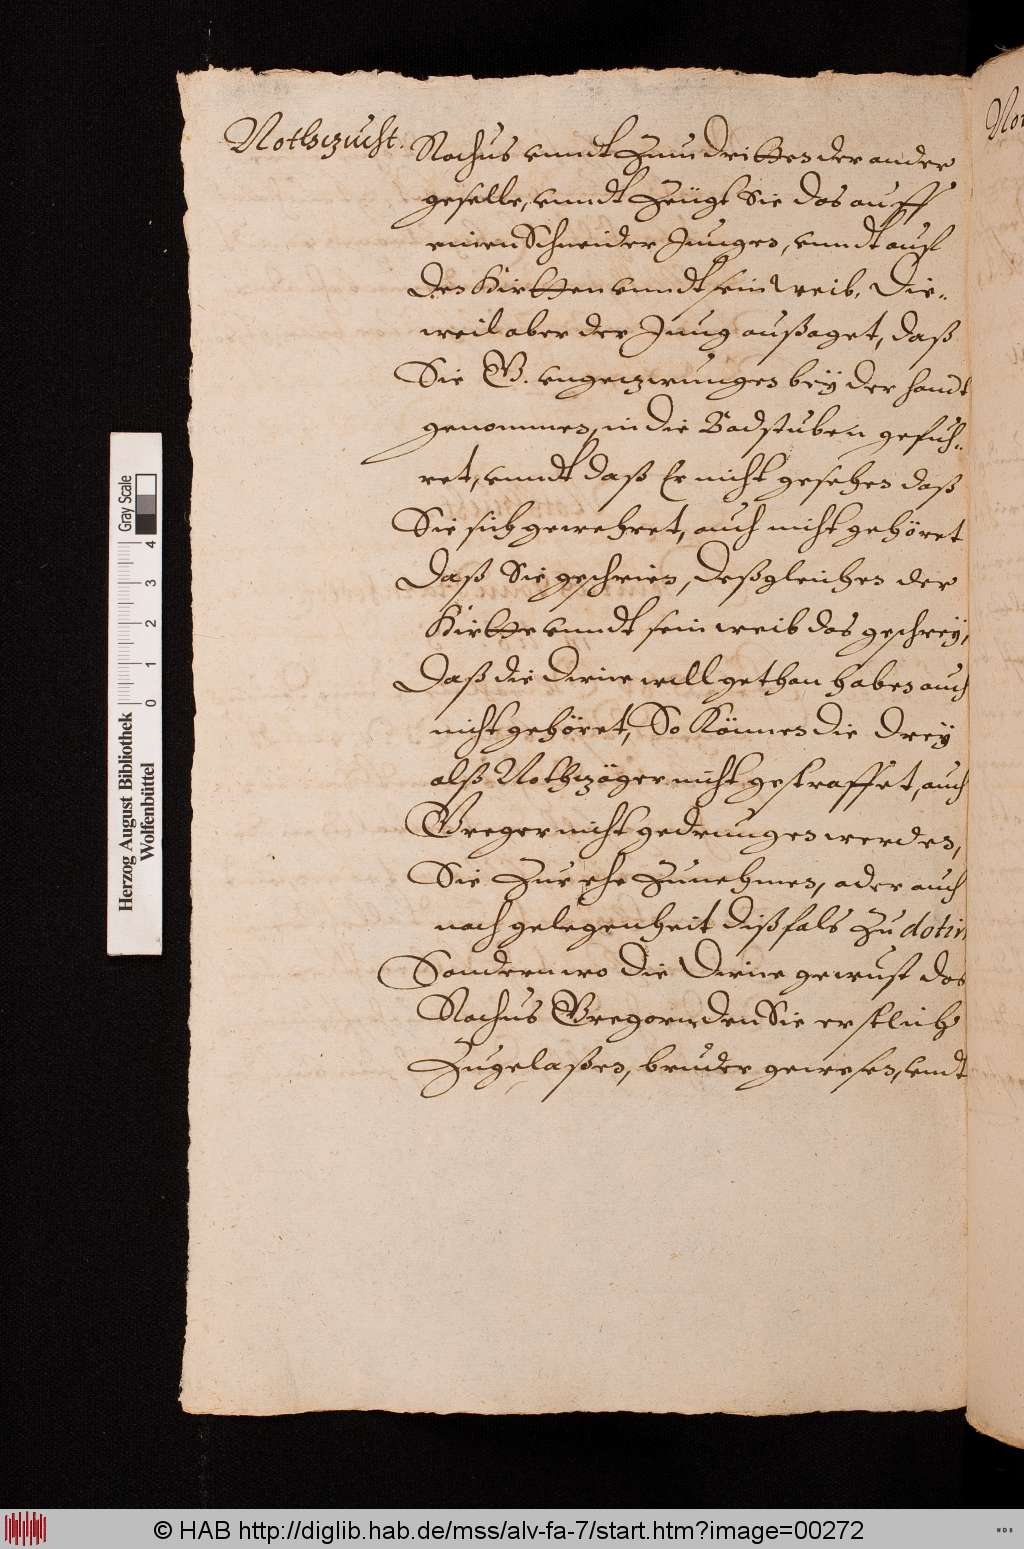 Nothzucht.
Nachus vnndt Zum dritten der ander
geselle, vnndt Zeugt Sie das auff
einen Schneider Jungen, vnndt auf
den Hirtten vnndt sein weib, Die-
weil aber der Jung außaget, daß
Sie G. vngezwungen bey der handt
genommen, in die Badstuben gefuh-
ret, vnndt daß Er nicht gesehen daß
Sie sich gewehret, auch nicht gehöret
Daß Sie geschrien, deßgleichen der
Hirtte vnndt sein weib das geschrey,
Daß die dirne will gethan haben auch
nicht gehöret, So Können die drey
alß Nothzöger nicht gestraffet, auch
Greger nicht gedrungen werden,
Sie Zur ehe Zunehmen, oder auch
nach gelegenheit dißfals Zu dotirn
Sondern wo die Dirne gewust das
Nachus Gregorn, den Sie erstlich
Zugelaßen, bruder gewesen, vndt
Herzog August Bibliothek
Wolfenbüttel
0 1 2 3 4
Gray Scale
© HAB http://diglib.hab.de/mss/alv-fa-7/start.htm?image=00272